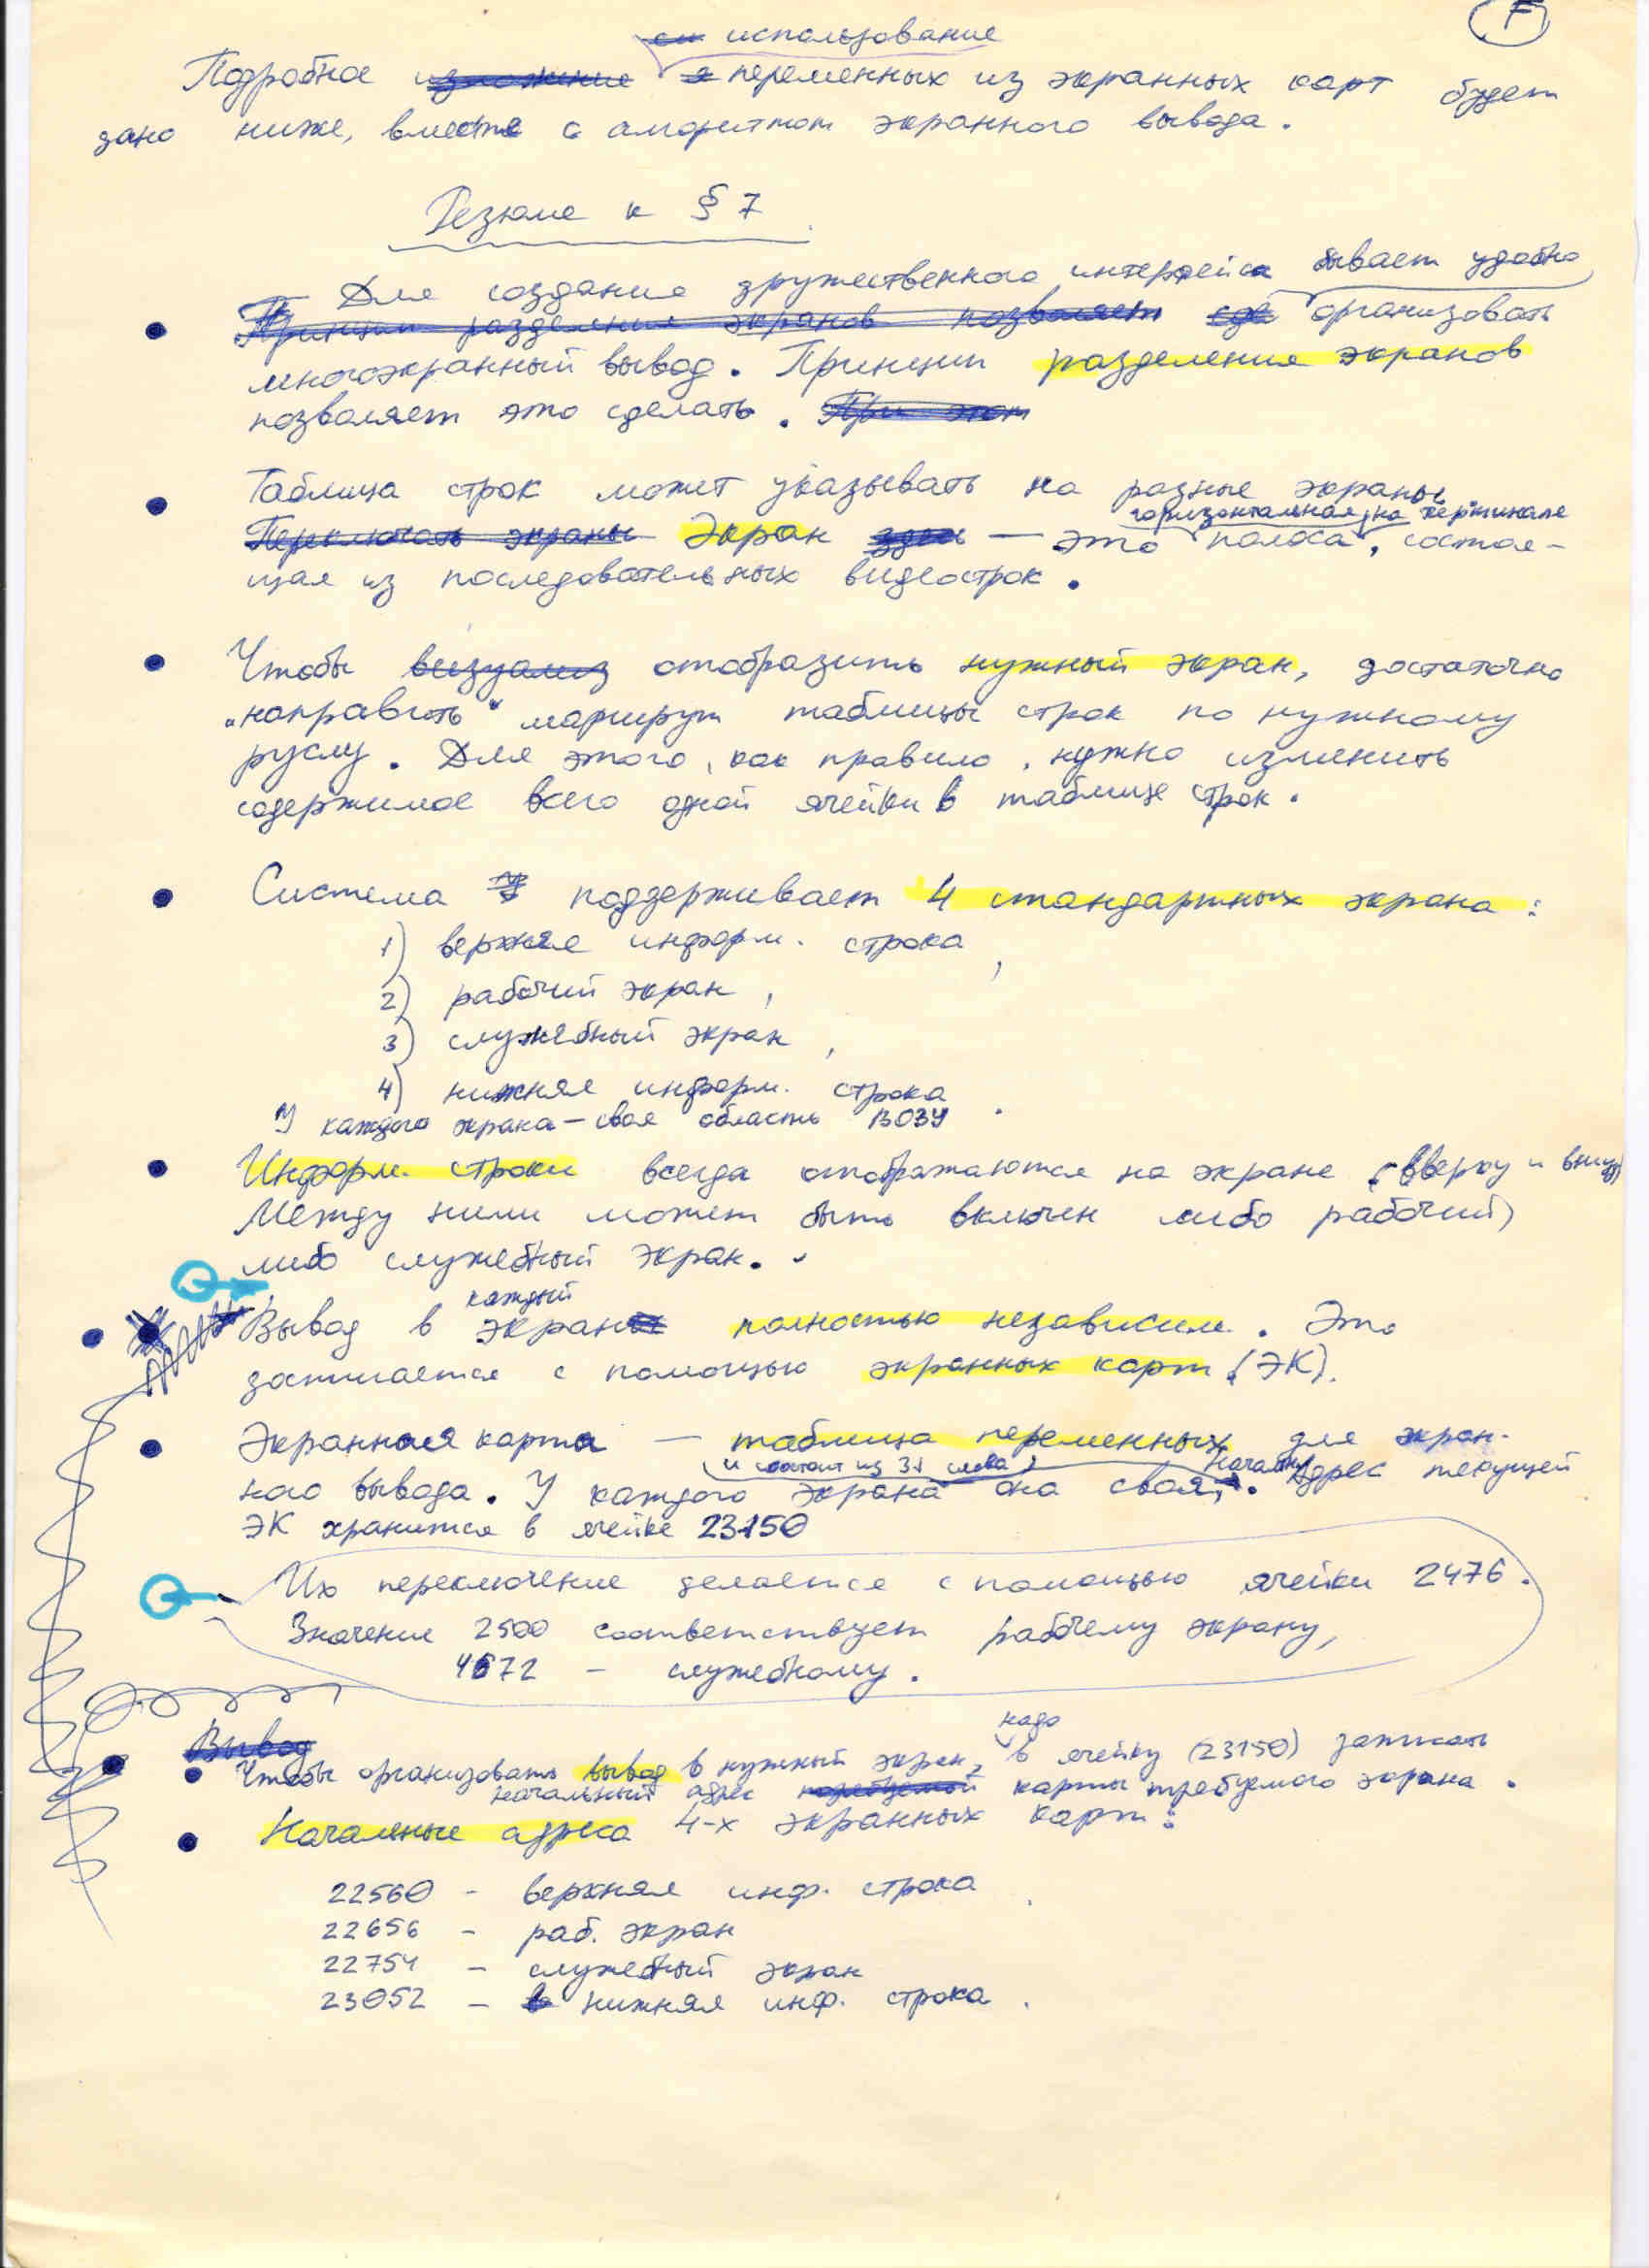 F
использование
Подробное изложение переменных из экранных карт будет
дано ниже, вместе с алгоритмом экранного вывода.
Резюме к § 7
Для создания дружественного интерфейса бывает удобно
Принцип разделения экранов позволяет организовать
многоэкранный вывод. Принцип разделения экранов
позволяет это сделать. При этом
Таблица строк может указывать на разные экраны.
горизонтальная на терминале
Переключать экраны Экран — это полоса, состоя-
щая из последовательных видеострок.
Чтобы визуализ отобразить нужный экран, достаточно
„направить“ маршрут таблицы строк по нужному
руслу. Для этого, как правило, нужно изменить
содержимое всего одной ячейки в таблице строк.
Система поддерживает 4 стандартных экрана:
1) верхняя информ. строка,
2) рабочий экран,
3) служебный экран,
4) нижняя информ. строка.
У каждого экрана – своя область ВОЗУ
Информ. строки всегда отображаются на экране (вверху и внизу)
Между ними может быть включен либо рабочий,
либо служебный экран.
каждый
Вывод в экран полностью независим. Это
достигается с помощью экранных карт (ЭК).
Экранная карта — таблица переменных для экран-
и состоит из 31 слова Начальн.
ного вывода. У каждого экрана она своя. Адрес текущей
ЭК хранится в ячейке 23150
Их переключение делается с помощью ячейки 2476.
Значение 2500 соответствует рабочему экрану,
4672 – служебному.
Вывод
надо
Чтобы организовать вывод в нужный экран, в ячейку (23150) записать
начальный адрес карты требуемого экрана.
Начальные адреса 4-х экранных карт:
22560 - верхняя инф. строка
22656 - раб. экран
22754 - служебный экран
23052 - нижняя инф. строка.